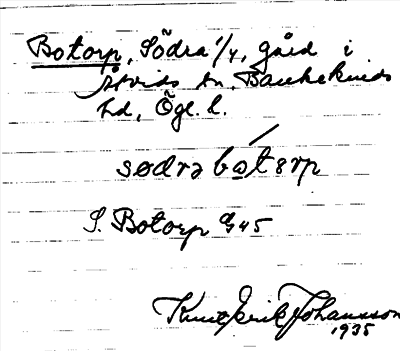 Botorp, Södra 1/4, gård i
Åtvids sn, Bankekinds
hd, Ögl. l.
sødrə botərp
S. Botorp G45
Knut Erik Johansson
1935